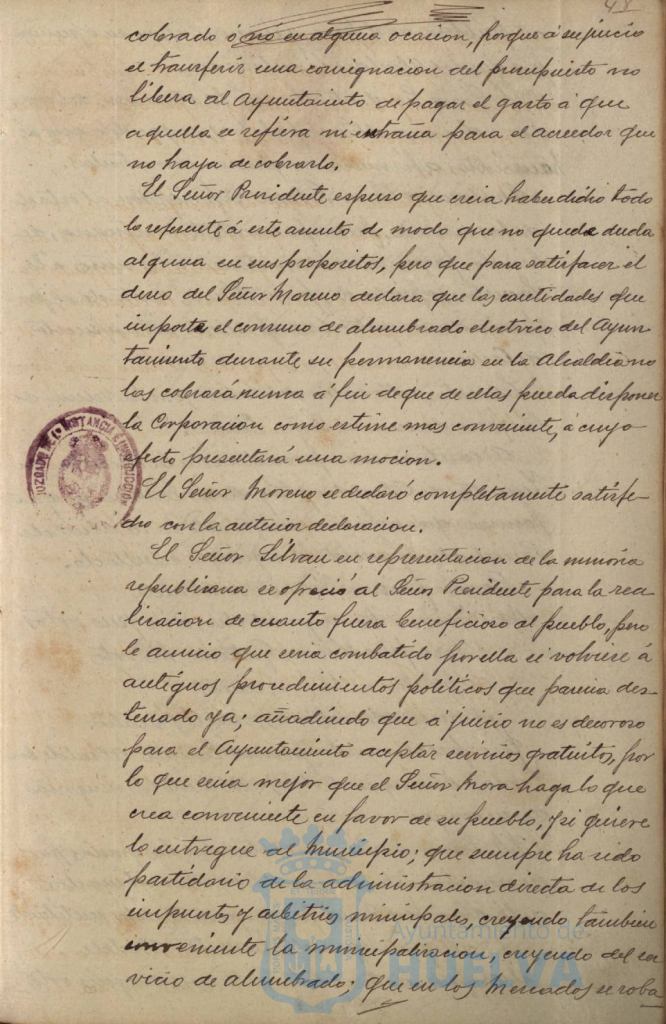 48
cobrado ó no en alguna ocasion, porque á su juicio
el transferir una consignacion del presupuesto no
libera al Ayuntamiento de pagar el gasto á que
aquella se refiera ni entraña para el acreedor que
no haya de cobrarlo.
El Señor Presidente espuso que creia haber dicho todo
lo referente á este asunto de modo que no quede duda
alguna en sus propositos, pero que para satisfacer el
deseo del Señor Moreno declara que las cantidades que
importe el consumo de alumbrado electrico del Ayun-
tamiento durante su permanencia en la Alcaldia no
las cobrará nunca á fin de que de ellas pueda disponer
la Corporacion como estime mas conveniente, á cuyo
efecto presentará una mocion.
El Señor Moreno se declaró completamente satisfe-
cho con la anterior declaracion.
El Señor Silvan en representacion de la minoria
republicana se ofreció al Señor Presidente para la rea-
lizacion de cuanto fuera beneficioso al pueblo, pero
le anuncio que seria combatido por ella si volviese á
antiguos procedimientos politicos que parecia des-
terrado ya; añadiendo que á juicio no es decoroso
para el Ayuntamiento aceptar servicios gratuitos, por
lo que seria mejor que el Señor Mora haga lo que
crea conveniente en favor de su pueblo, y si quiere
lo entregue al Municipio; que siempre ha sido
partidario de la administracion directa de los
impuestos y arbitrios municipales, creyendo tambien
conveniente la municipalizacion, creyendo del ser-
vicio de alumbrado; que en los Mercados se roba
JUZGADO DE INSTANCIA E INSTRUCCION
Ayuntamiento de
HUELVA